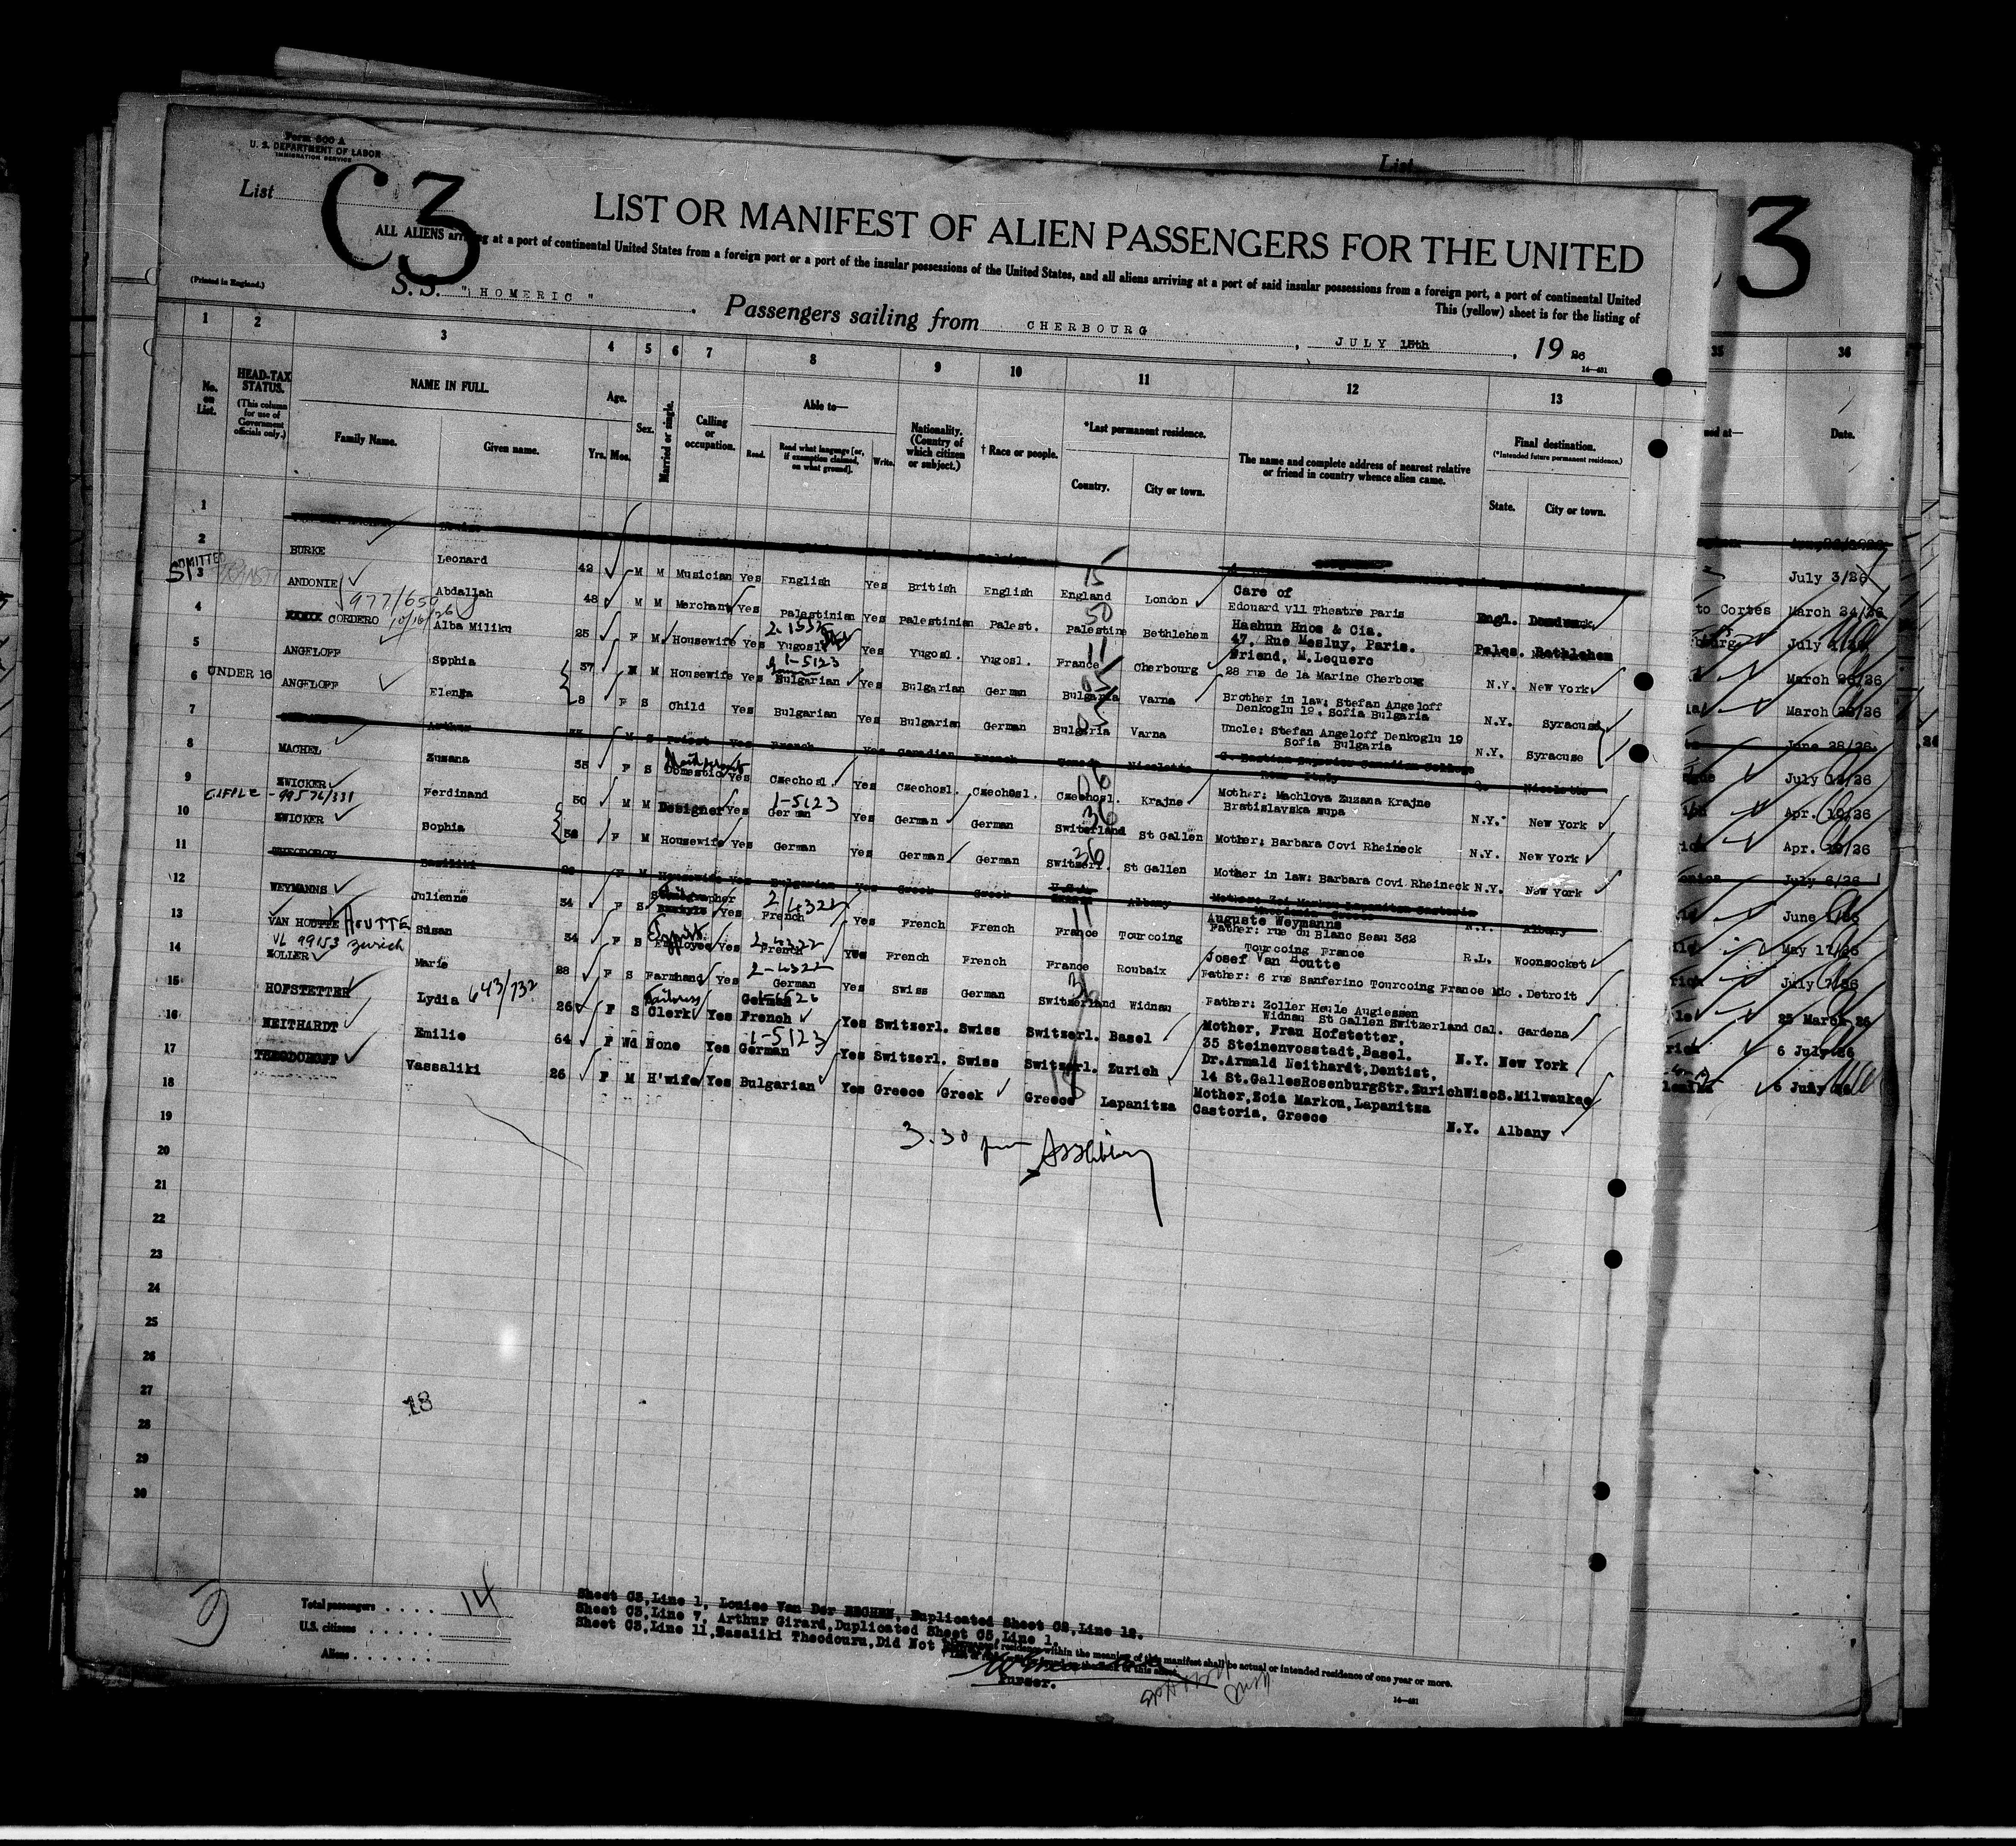 Form 500 A
U. S. DEPARTMENT OF LABOR
IMMIGRATION SERVICE
List
C3
List
3
LIST OR MANIFEST OF ALIEN PASSENGERS FOR THE UNITED
ALL ALIENS arriving at a port of continental United States from a foreign port or a port of the insular possessions of the United States, and all aliens arriving at a port of said insular possessions from a foreign port, a port of continental United
This (yellow) sheet is for the listing of
(Printed in England.)
S. S. "HOMERIC" . Passengers sailing from CHERBOURG , JULY 15th , 19 26
14—481
1 2 3 4 5 6 7 8 9 10 11 12 13 35 36
No. on List.
HEAD-TAX STATUS.
(This column for use of Government officials only.)
NAME IN FULL.
Family Name. Given name.
Age.
Yrs. Mos.
Sex.
Married or single.
Calling or occupation.
Able to—
Read. Read what language [or, if exemption claimed, on what ground]. Write.
Nationality. (Country of which citizen or subject.)
† Race or people.
*Last permanent residence.
Country. City or town.
The name and complete address of nearest relative or friend in country whence alien came.
Final destination.
(*Intended future permanent residence.)
State. City or town.
Date.
1
2 BURKE Leonard 42 M M Musician Yes English Yes British English England London Care of Edouard Vll Theatre Paris Engl. July 3/26
15
ADMITTED
3 ANDONIE Abdallah 48 M M Merchant Yes Palestinian Yes Palestinian Palest. Palestine Bethlehem Hashun Hnos & Cia. 47, Rue Mesluy, Paris. Pales. Bethlehem to Cortes March 24/26
977/650 10/16/26
50
4 CORDERO Alba Miliku 25 F M Housewife Yes Yugosl. Yes Yugosl. Yugosl. France Cherbourg Friend, M.Lequerc 28 rue de la Marine Cherbourg N.Y. New York
11
5 ANGELOFF Sophia 37 M Housewife Yes Bulgarian Yes Bulgarian German Bulgaria Varna Brother in law: Stefan Angeloff Denkoglu 19. Sofia Bulgaria N.Y. Syracuse March 26/26
1-5123
05
6 UNDER 16 ANGELOFF Elenka 8 F S Child Yes Bulgarian Yes Bulgarian German Bulgaria Varna Uncle; Stefan Angeloff Denkoglu 19 Sofia Bulgaria N.Y. Syracuse March 26/26
05
7 Arthur M S Priest Yes French Yes Canadian French Nicolette June 28/26.
8 MACHEL Zuzana 35 F S Domestic Yes Czechosl. Yes Czechosl. Czechosl. Czechosl. Krajne Mother: Machlova Zuzana Krajne Bratislavska zupa N.Y. New York July 12/26
06
9 ZWICKER Ferdinand 50 M M Designer Yes German Yes German German Switzerland St Gallen Mother; Barbara Covi Rheineck N.Y. New York Apr. 19/26
-99576/331
1-5123
36
10 ZWICKER Sophia F M Housewife Yes German Yes German German Switzerl. St Gallen Mother in law: Barbara Covi Rheineck N.Y. New York Apr. 19/26
36
11 THEODOROU Basiliki F M Housewife Yes Bulgarian Yes Greek Greek Albany Mother: Zoi Markou Lapanitsa Castoria N.Y. Albany July 6/26
12 WEYMANNS Julienne 34 F S Yes French Yes French French France Tourcoing Auguste Weymanns Father: rue du Blanc Seau 362 Tourcoing France R.I. Woonsocket
11
13 VAN HOUTTE HOUTTE Susan 34 F S Employee Yes French Yes French French France Roubaix Josef Van Houtte Father: 6 rue Sanferino Tourcoing France Mic. Detroit May 17/26
Typist
2-4322
VL 99153 Zurich
14 ZOLLER Marie 28 F S Farmhand Yes German Yes Swiss German Switzerland Widnau Father: Zoller Heule Augiessen Widnau St Gallen Switzerland Cal. Gardena July 7/26
2-4322
36
15 HOFSTETTER Lydia 643/732 26 F S Clerk Yes German French Yes Switzerl. Swiss Switzerl. Basel Mother, Frau Hofstetter, 35 Steinenvosstadt, Basel. N.Y. New York 25 March 26
16 NEITHARDT Emilie 64 F Wd None Yes German Yes Switzerl. Swiss Switzerl. Zurich Dr.Armald Neithardt,Dentist, 14 St.GallesRosenburgStr.Zurich Wisc S.Milwaukee 6 July 26
1-5123
17 THEODOROFF Vassaliki 26 F M H'wife Yes Bulgarian Yes Greece Greek Greece Lapanitza Mother,Zoia Markou,Lapanitza Castoria, Greece N.Y. Albany 6 July 26
18
19
3.30 pm
20
21
22
23
24
25
26
27
18
28
29
30
Total passengers 14
U.S. citizens
Aliens
Sheet C3,Line 1, Louise Van Der EECHEN, Duplicated Sheet C2,Line 12.
Sheet C3,Line 7, Arthur Girard,Duplicated Sheet C5,Line 1.
Sheet C3,Line 11,Basaliki Theodouru,Did Not
residence within the meaning of this manifest shall be actual or intended residence of one year or more.
Purser.
14—481